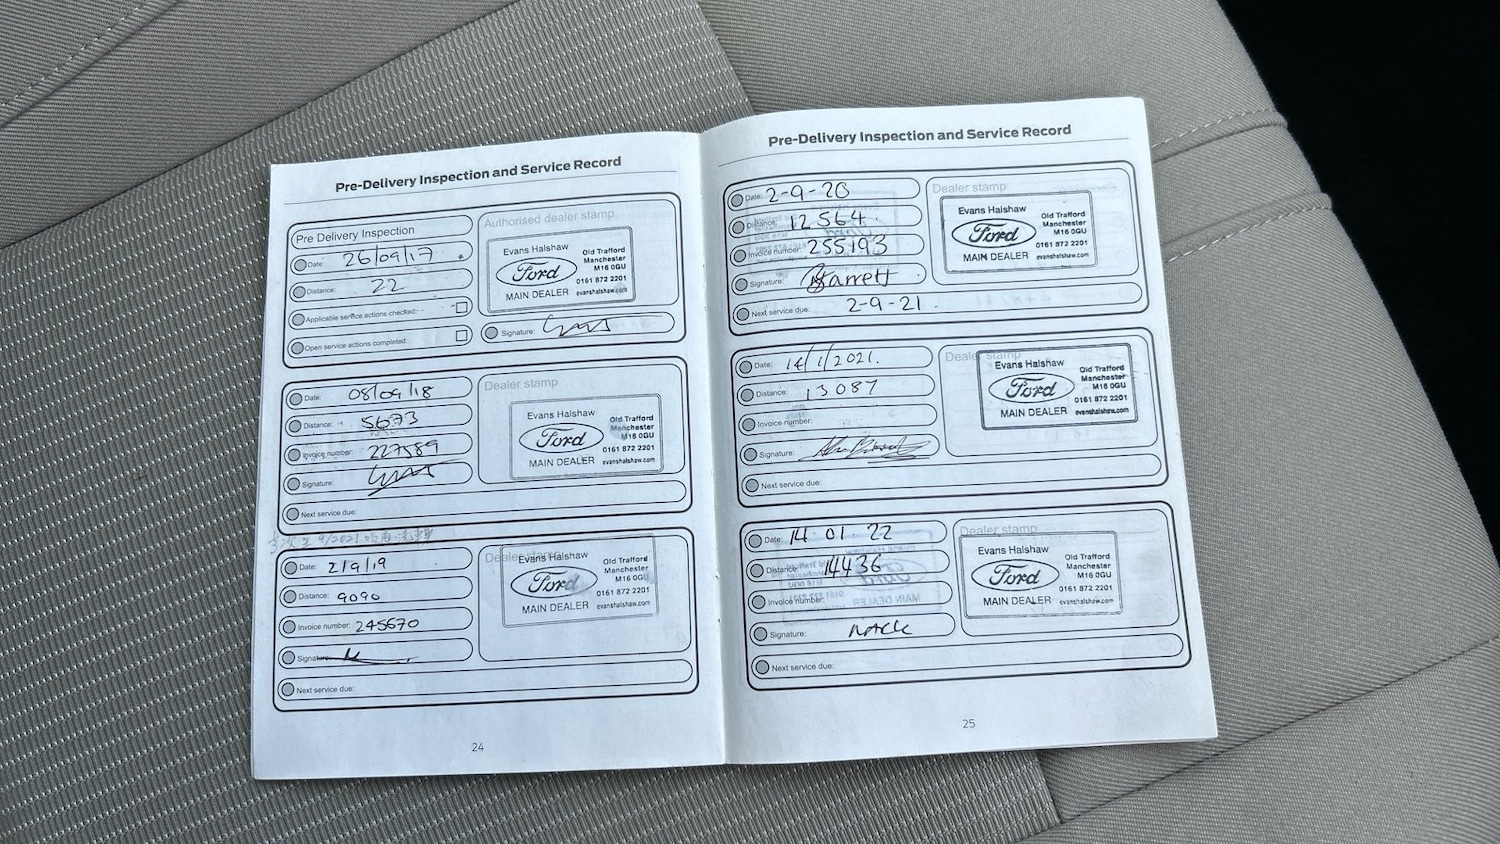 Pre-Delivery Inspection and Service Record
Pre Delivery Inspection
Date: 26/09/17
Distance: 22
Applicable service actions checked:
Open service actions completed:
Authorised dealer stamp
Evans Halshaw
Ford
MAIN DEALER
Old Trafford
Manchester
M16 0GU
0161 872 2201
evanshalshaw.com
Signature:
Date: 08/09/18
Distance: 5673
Invoice number: 227589
Signature:
Next service due:
Dealer stamp
Evans Halshaw
Ford
MAIN DEALER
Old Trafford
Manchester
M16 0GU
0161 872 2201
evanshalshaw.com
9/2021
Date: 2/9/19
Distance: 9090
Invoice number: 245670
Signature:
Next service due:
Dealer stamp
Evans Halshaw
Ford
MAIN DEALER
Old Trafford
Manchester
M16 0GU
0161 872 2201
evanshalshaw.com
24
Pre-Delivery Inspection and Service Record
Date: 2-9-20
Distance: 12564
Invoice number: 255193
Signature: Barrett
Next service due: 2-9-21.
Dealer stamp
Evans Halshaw
Ford
MAIN DEALER
Old Trafford
Manchester
M16 0GU
0161 872 2201
evanshalshaw.com
Date: 14/1/2021.
Distance: 13087
Invoice number:
Signature:
Next service due:
Dealer stamp
Evans Halshaw
Ford
MAIN DEALER
Old Trafford
Manchester
M16 0GU
0161 872 2201
evanshalshaw.com
Date: 14 01 22
Distance: 14436
Invoice number:
Signature:
Next service due:
Dealer stamp
Evans Halshaw
Ford
MAIN DEALER
Old Trafford
Manchester
M16 0GU
0161 872 2201
evanshalshaw.com
25